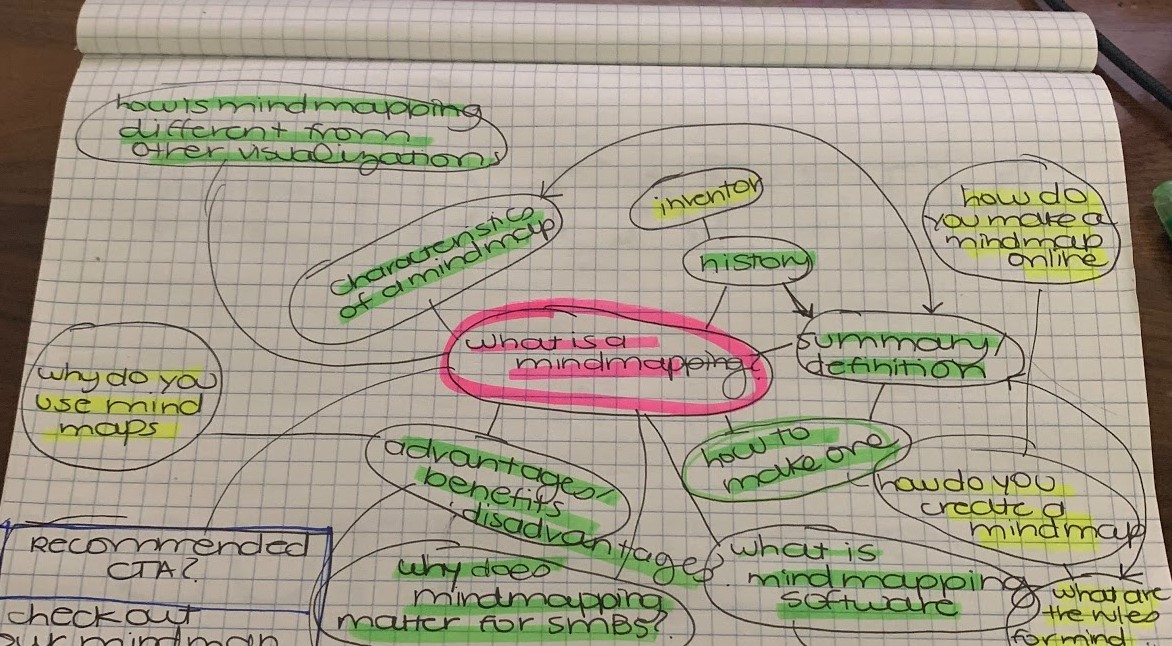 how is mindmapping
different from
other visualizations
inventor
how do
you make a
mindmap
online
characteristics
of a mindmap
history
what is a
mindmapping?
summary/
definition
why do you
use mind
maps
advantages/
benefits
disadvantages?
how to
make one
how do you
create a
mindmap
Recommended
CTA?
check out
our mindmap
why does
mindmapping
matter for SMBs?
what is
mindmapping
software
what are
the rules
for mind